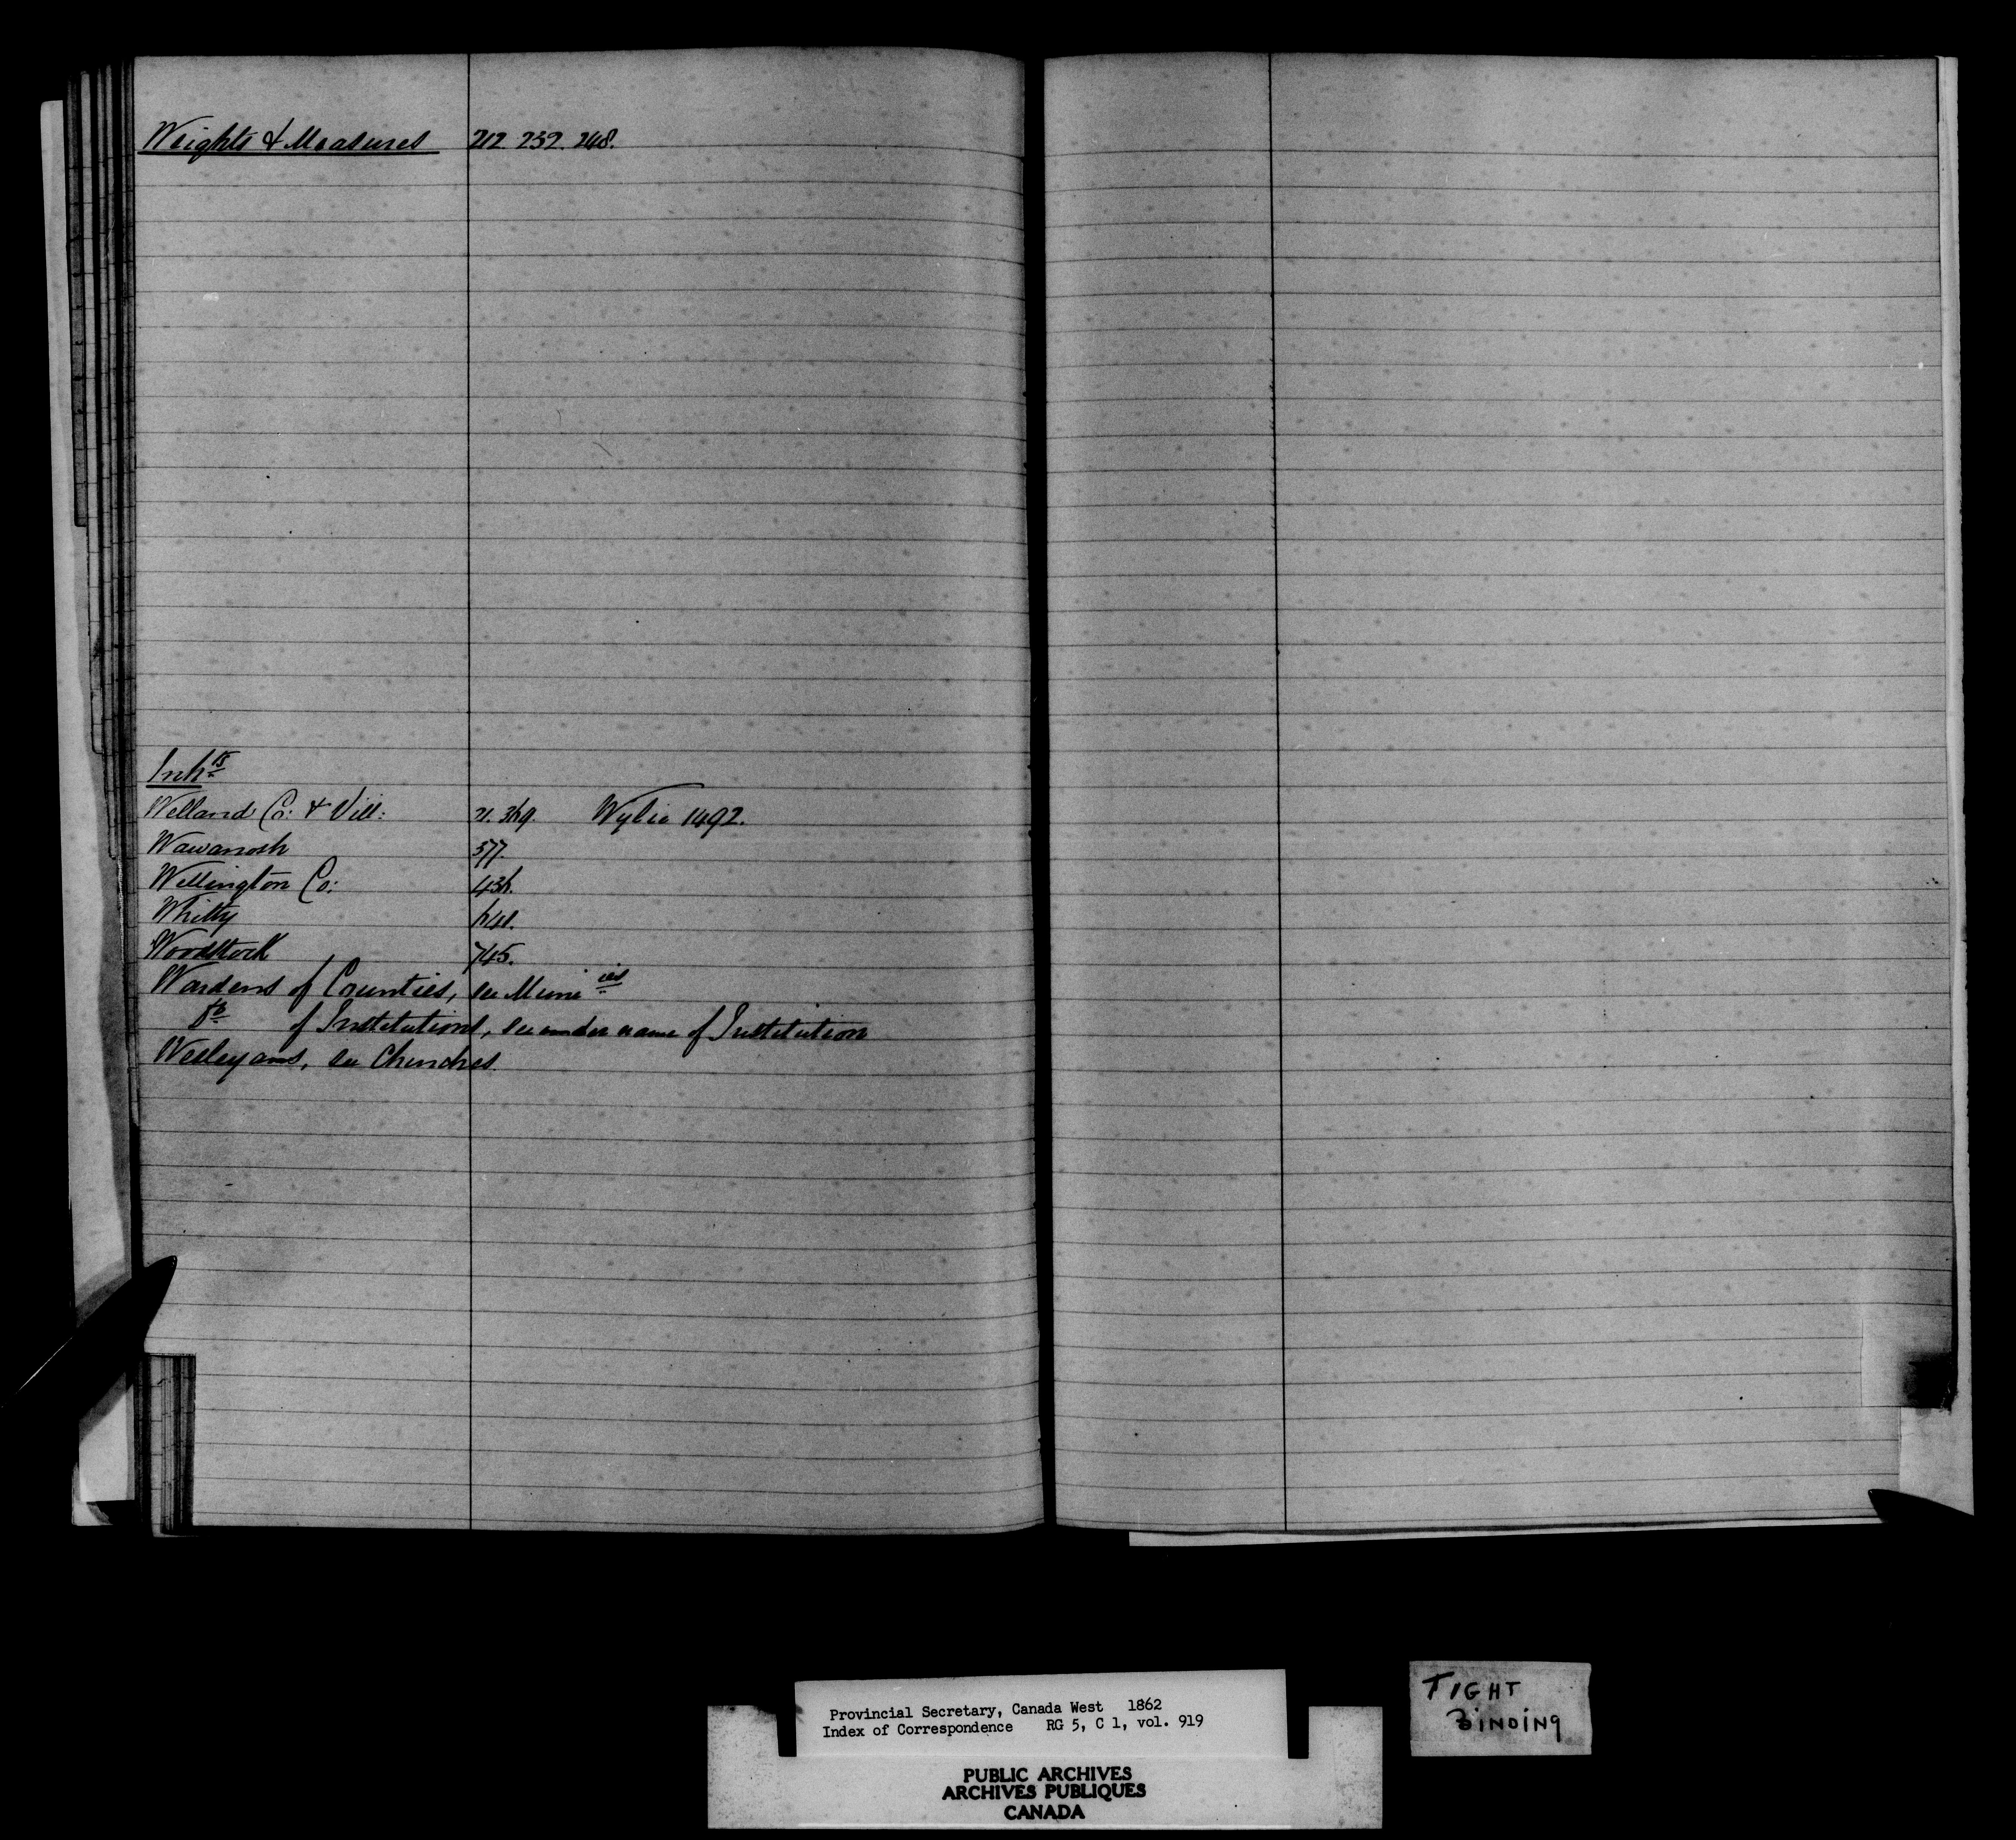 Weights & Measures 212. 232. 248.
Inh.ts
Welland Co: & Vill: 21. 369. Wylie 1492.
Wawanosh 377.
Wellington Co: 436.
Whitby 641.
Woodstock 745.
Wardens of Counties, see Muni.ies
Do. of Institutions, see under name of Institution
Wesleyans, see Churches.
Provincial Secretary, Canada West 1862
Index of Correspondence RG 5, C 1, vol. 919
PUBLIC ARCHIVES
ARCHIVES PUBLIQUES
CANADA
TIGHT
BINDING